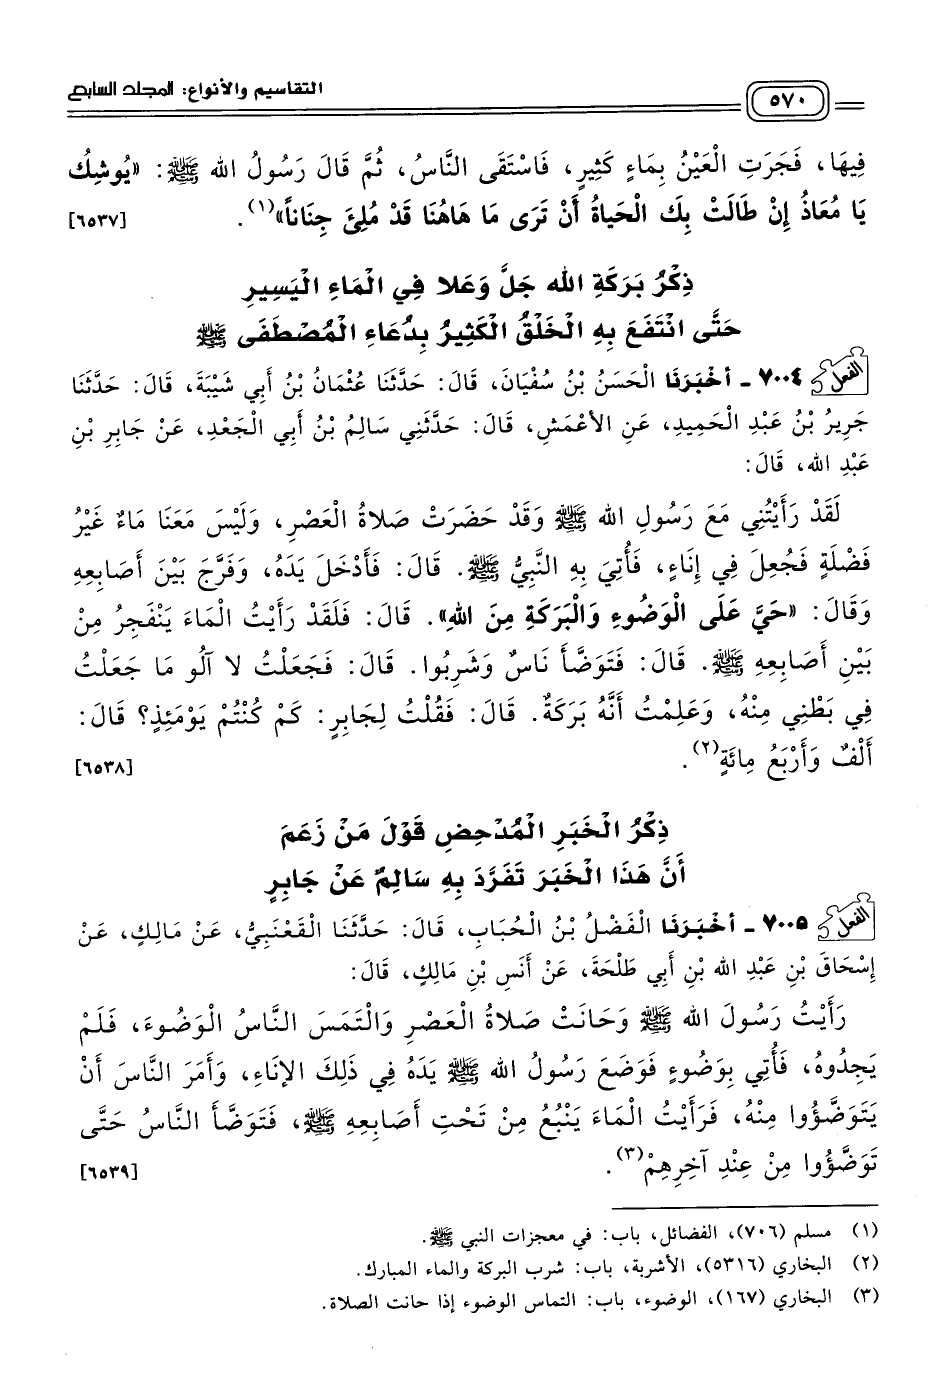 ٥٧٠ التقاسيم والأنواع: المجلد السابع
فِيهَا، فَجَرَتِ الْعَيْنُ بِمَاءٍ كَثِيرٍ، فَاسْتَقَى النَّاسُ، ثُمَّ قَالَ رَسُولُ الله ﷺ: «يُوشِكُ
يَا مُعَاذُ إِنْ طَالَتْ بِكَ الْحَيَاةُ أَنْ تَرَى مَا هَاهُنَا قَدْ مُلِئَ جِنَاناً»(١). [٦٥٣٧]
ذِكْرُ بَرَكَةِ الله جَلَّ وَعَلا فِي الْمَاءِ الْيَسِيرِ
حَتَّى انْتَفَعَ بِهِ الْخَلْقُ الْكَثِيرُ بِدُعَاءِ الْمُصْطَفَى ﷺ
الفعل ٧٠٠٤ ـ أَخْبَرَنَا الْحَسَنُ بْنُ سُفْيَانَ، قَالَ: حَدَّثَنَا عُثْمَانُ بْنُ أَبِي شَيْبَةَ، قَالَ: حَدَّثَنَا
جَرِيرُ بْنُ عَبْدِ الْحَمِيدِ، عَنِ الأَعْمَشِ، قَالَ: حَدَّثَنِي سَالِمُ بْنُ أَبِي الْجَعْدِ، عَنْ جَابِرِ بْنِ
عَبْدِ الله، قَالَ:
لَقَدْ رَأَيْتُنِي مَعَ رَسُولِ الله ﷺ وَقَدْ حَضَرَتْ صَلاةُ الْعَصْرِ، وَلَيْسَ مَعَنَا مَاءٌ غَيْرُ
فَضْلَةٍ فَجُعِلَ فِي إِنَاءٍ، فَأُتِيَ بِهِ النَّبِيُّ ﷺ. قَالَ: فَأَدْخَلَ يَدَهُ، وَفَرَّجَ بَيْنَ أَصَابِعِهِ
وَقَالَ: «حَيَّ عَلَى الْوَضُوءِ وَالْبَرَكَةِ مِنَ اللهِ». قَالَ: فَلَقَدْ رَأَيْتُ الْمَاءَ يَنْفَجِرُ مِنْ
بَيْنِ أَصَابِعِهِ ﷺ. قَالَ: فَتَوَضَّأَ نَاسٌ وَشَرِبُوا. قَالَ: فَجَعَلْتُ لا آلُو مَا جَعَلْتُ
فِي بَطْنِي مِنْهُ، وَعَلِمْتُ أَنَّهُ بَرَكَةٌ. قَالَ: فَقُلْتُ لِجَابِرٍ: كَمْ كُنْتُمْ يَوْمَئِذٍ؟ قَالَ:
أَلْفٌ وَأَرْبَعُ مِائَةٍ(٢). [٦٥٣٨]
ذِكْرُ الْخَبَرِ الْمُدْحِضِ قَوْلَ مَنْ زَعَمَ
أَنَّ هَذَا الْخَبَرَ تَفَرَّدَ بِهِ سَالِمٌ عَنْ جَابِرٍ
الفعل ٧٠٠٥ ـ أَخْبَرَنَا الْفَضْلُ بْنُ الْحُبَابِ، قَالَ: حَدَّثَنَا الْقَعْنَبِيُّ، عَنْ مَالِكٍ، عَنْ
إِسْحَاقَ بْنِ عَبْدِ الله بْنِ أَبِي طَلْحَةَ، عَنْ أَنَسِ بْنِ مَالِكٍ، قَالَ:
رَأَيْتُ رَسُولَ الله ﷺ وَحَانَتْ صَلاةُ الْعَصْرِ وَالْتَمَسَ النَّاسُ الْوَضُوءَ، فَلَمْ
يَجِدُوهُ، فَأُتِي بِوَضُوءٍ فَوَضَعَ رَسُولُ الله ﷺ يَدَهُ فِي ذَلِكَ الإِنَاءِ، وَأَمَرَ النَّاسَ أَنْ
يَتَوَضَّؤُوا مِنْهُ، فَرَأَيْتُ الْمَاءَ يَنْبُعُ مِنْ تَحْتِ أَصَابِعِهِ ﷺ، فَتَوَضَّأَ النَّاسُ حَتَّى
تَوَضَّؤُوا مِنْ عِنْدِ آخِرِهِمْ(٣). [٦٥٣٩]
(١) مسلم (٧٠٦)، الفضائل، باب: في معجزات النبي ﷺ.
(٢) البخاري (٥٣١٦)، الأشربة، باب: شرب البركة والماء المبارك.
(٣) البخاري (١٦٧)، الوضوء، باب: التماس الوضوء إذا حانت الصلاة.